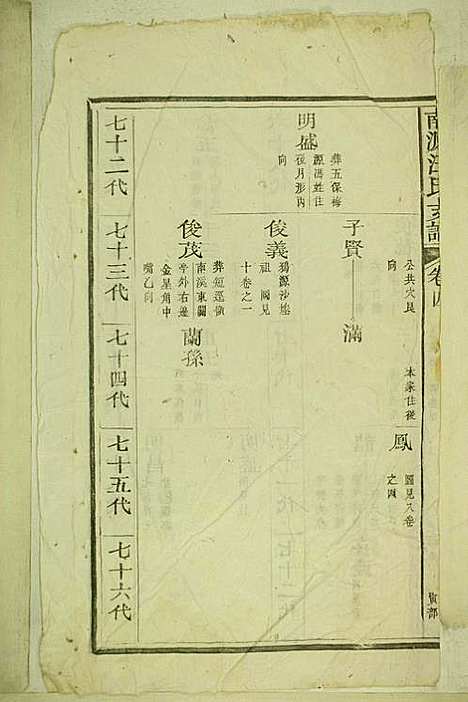 南源汪氏支譜
卷四
公共穴艮
向
本家住後
鳳
圖見八卷
之四
子賢
滿
明盛
葬五保梅
源馮姓住
後月形丙
向
俊義
獨源沙墟
祖圖見
十卷之一
俊茂
葬短逕倫
南溪東闗
亭外右邊
金星角中
嘴乙向
蘭孫
七十二代
七十三代
七十四代
七十五代
七十六代